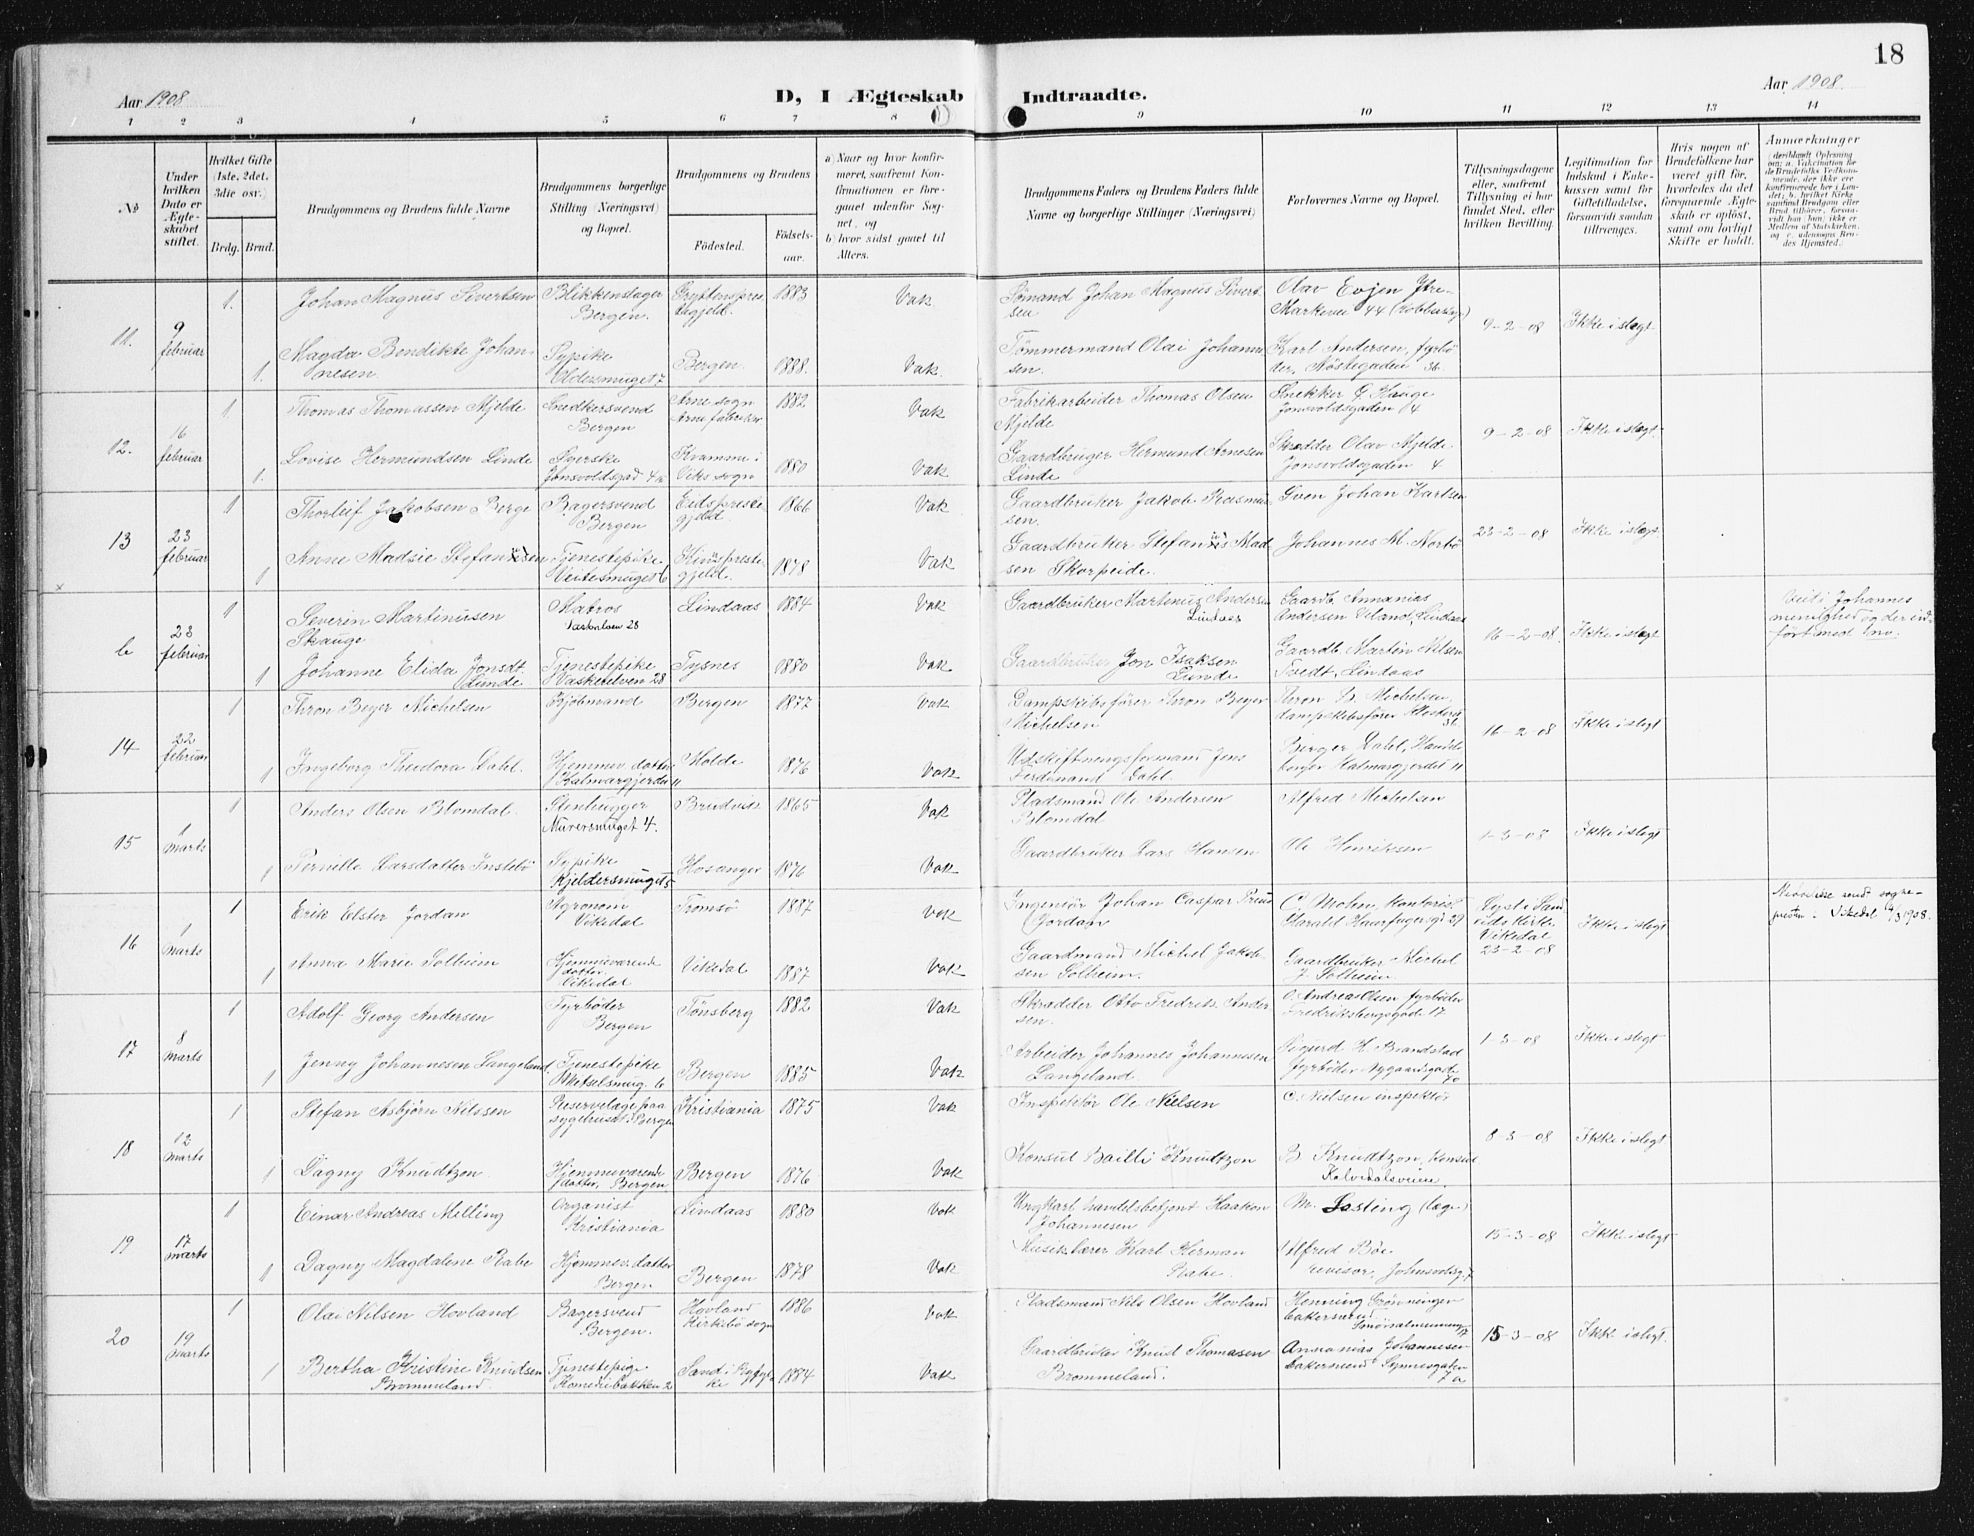 18
Aar 1908
D, I Ægteskab Indtraadte.
Aar 1908
1 2 3 4 5 6 7 8 9 10 11 12 13 14
№
Under hvilken Dato er Ægteskabet stiftet.
Hvilket Gifte (1ste, 2det, 3die osv.).
Brdg. Brud.
Brudgommens og Brudens fulde Navne
Brudgommens borgerlige Stilling (Næringsvei) og Bopæl.
Brudgommens og Brudens
Födested.
Födselsaar.
a) Naar og hvor konfirmeret, saafremt Konfirmationen er foregaaet udenfor Sognet, og
b) hvor sidst gaaet til Alters.
Brudgommens Faders og Brudens Faders fulde Navne og borgerlige Stillinger (Næringsvei)
Forlovernes Navne og Bopæl.
Tillysningsdagene eller, saafremt Tillysning ei har fundet Sted, efter hvilken Bevilling.
Legitimation for Indskud i Enkekassen samt for Giftetilladelse, forsaavidt saadan tiltrænges.
Hvis nogen af Brudefolkene har været gift för, hvorledes da det foregaaende Ægteskab er oplöst, samt om lovligt Skifte er holdt.
Anmærkninger
11. 9 februar
1. Johan Magnus Sivertsen Blikkenslager Bergen. Gryttens prestegjeld. 1883 Vak
Sømand Johan Magnus Sivertsen Olav Evjen Ytre-Markevei 44
9-2-08 Ikke i slegt
1. Magda Bendikte Johannesen Sypike Oldesmuget 7 Bergen. 1888. Vak.
Tømmermand Olai Johannesen. Karl Andersen, fyrbøder, Nøstegaden 36
12. 16 februar
1 Thomas Thomassen Mjelde Snedkersvend Bergen Arne sogn Arne fabrikker 1882 Vak
Fabrikarbeider Thomas Olsen Mjelde Snekker G. Hauge Jonsvoldsgaden 14
9-2-08 Ikke i slegt
1. Lovise Hermundsen Linde Væverske Jonsvoldsgad 4 Kvamme i Viks sogn 1880 Vak
Gaardbruger Hermund Arnesen Linde Skrædder Olav Mjelde Jonsvoldsgaden 4
13 23 februar
1 Thorleif Jakobsen Berge Bagersvend Bergen Eids prestegjeld. 1866 Vak
Gaardbruker Jakob Rasmussen. Sven Johan Karlsen
23-2-08 Ikke i slegt
1 Anne Madsie Stefansen Tjenestepike Veitesmuget 6 Kinns prestegjeld. 1878 Vak
Gaardbruker Stefanus Madsen Skorpeide. Johannes M. Norbø
b 23 februar
1 Severin Martinusen Skauge Matros Vaskelven 28 Lindaas 1884 Vak
Gaardbruker Martinus Andersen Lindaas Gaardb. Annanias Andersen Lindaas
16-2-08 Ikke i slegt
Viet i Johannes menighed og der indført med no.
1 Johanne Elida Jonsdt Lunde Tjenestepike Vaskeelven 28 Tysnes 1880 Vak
Gaardbruker Jon Isaksen Lunde Gaardb. Martin Nilsen Tvedt, Lindaas
14 22 februar
1 Thron Beyer Michelsen Kjøbmand Bergen 1877 Vak
Dampskibsfører Thron Beyer Michelsen Thron B. Michelsen, dampskibsfører
16-2-08 Ikke i slegt
1 Ingeborg Theodora Dahl. Hjemmev. datter Kalmargjerdet 11 Molde 1876 Vak
Udskiftningsformand Jens Ferdinand Dahl Birger Dahl, Kalmargjerdet 11
15 1 marts
1 Anders Olsen Blomdal. Stenhugger Murersmuget 4. Bruvik 1865 Vak
Pladsmand Ole Andersen Blomdal Alfred Michelsen
1-3-08 Ikke i slegt
1 Pernille Larsdatter Instebø Sypike Kjeldersmuget 5 Hosanger 1876 Vak
Gaardbruker Lars Hansen Ole Henriksen
16 1 marts
1 Erik Elster Jordan Agronom Vikedal Tromsø 1887 Vak
Ingeniør Johan Caspar Preus Jordan C. Mohn, kontorist Harald Haarfagersgt 29
Lyst i Sandeids kirke Vikedal 23-2-08 Ikke i slegt
sendt sognepresten i Vikedal 4/3 1908.
1 Anna Marie Solheim Hjemmeværende datter, Vikedal Vikedal 1887 Vak
Gaardmand Michel Jakobsen Solheim. Gaardbruker Michel J. Solheim
17 8 marts
1 Adolf Georg Andersen Fyrbøder Bergen Tønsberg 1882 Vak
Skrædder Otto Fredrik Andersen. O. Andreas Olsen fyrbøder Fredriksbergsgade 17
1-3-08 Ikke i slegt
1 Jenny Johannesen Langeland. Tjenestepike Wetselsmug. 6 Bergen 1885 Vak
Arbeider Johannes Johannesen Langeland. Sigurd H. Brandstad fyrbøder Nygaardsgade 70
18 12 marts
1 Stefan Asbjörn Nilssen Reservelæge paa sygehuset Bergen Kristiania 1875 Vak
Inspektör Ole Nielsen O. Nielsen inspektör
8-3-08 Ikke i slegt
1 Dagny Knudtzon Hjemmeværende datter, Bergen Bergen 1876 Vak
Konsul Bailli Knudtzon B. Knudtzon, konsul Kalvedalsveien.
19 17 marts
1 Einar Andreas Melling Organist Kristiania Lindaas 1880 Vak
Ungkarl handelsbetjent Haakon Johannesen M. Losting (læge)
15-3-08 Ikke i slegt
1 Dagny Magdalene Rabe Hjemmev. datter Bergen Bergen 1878 Vak
Musiklærer Karl Herman Rabe. Alfred Böe revisor,
20 19 marts
1 Olai Nilsen Hovland Bagersvend Bergen. Hovland Kirkebö sogn 1886 Vak
Pladsmand Nils Olsen Hovland Henning Grönningen bakersvend
15-3-08 Ikke i slegt.
1 Bertha Kristine Knudsen Brommeland. Tjenestepige Komediebakken 2 Sand i Ryfylke 1884 Vak
Gaardbruker Knud Thomasen Brommeland. Ananias Johannesen bakersvend 7a